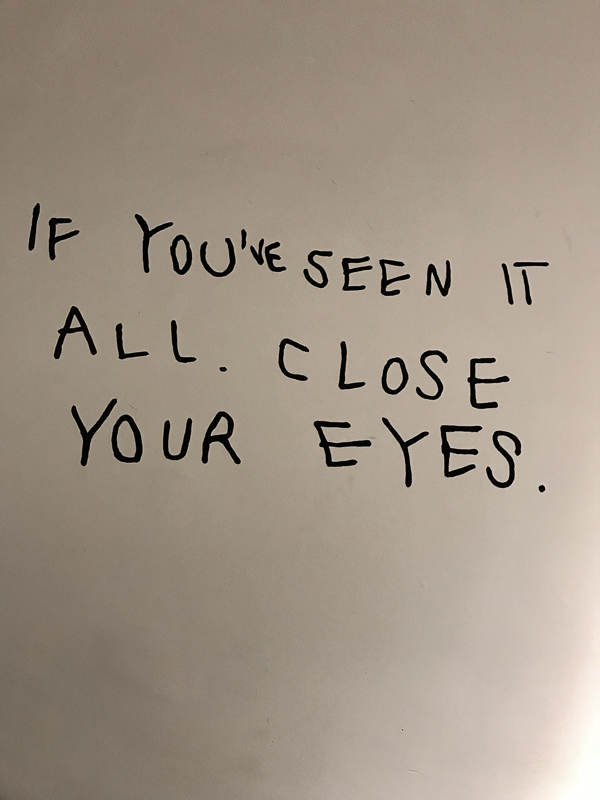 IF YOU'VE SEEN IT
ALL. CLOSE
YOUR EYES.